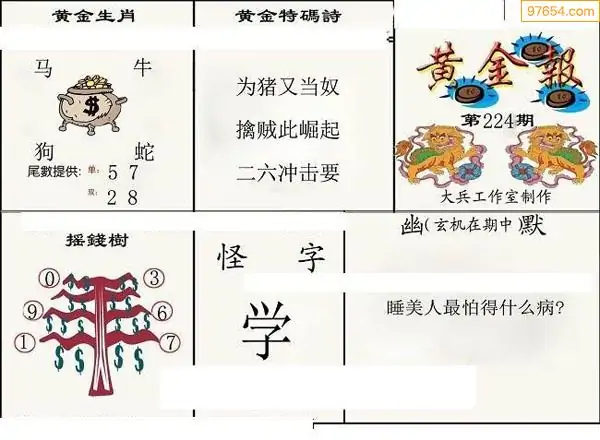 97654.com
黄金生肖
马 牛
$
狗 蛇
尾數提供: 单: 5 7
双: 2 8
黄金特碼詩
为猪又当奴
擒贼此崛起
二六冲击要
黄金報
第224期
大兵工作室制作
摇錢樹
0 3
9 6
1 7
$ $ $ $ $ $ $ $
怪 字
学
幽(玄机在期中)默
睡美人最怕得什么病?